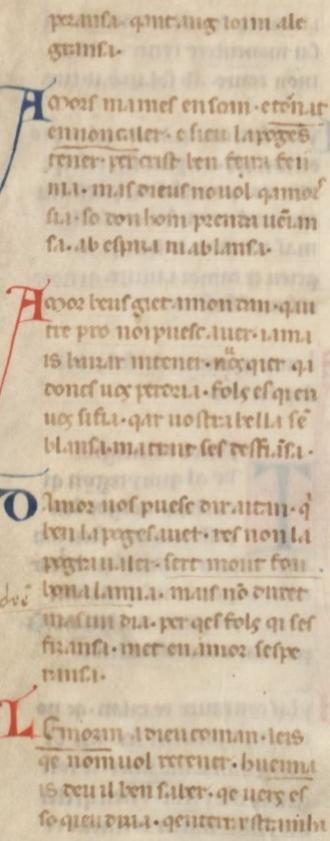 peransa. qant aug ioim ale
gransa.
Amors mames en soin. et en ait
en noncaler. e sieu la poges
tener. per crist ben feira fen
nia. mas dieus no uol qamor
sia. so don hom prenda ueian
sa. ab espaa ni ab lansa.
Amor beus giet a mon dan. qau
tre pro noi puesc auer. iama
is blazar ni tener. nous qier qi
doncs uos perdria. fols es qi en
uos si fia. qar uostra bella sem
blansa. ma trait ses desfiansa.
D Amor uos puesc dir aitan. qi
ben la poges auer. res non la
pogra ualer. fort mout fon
bona lamia. mais no duret
mas un dia. per qes fols qi ses
fiansa. met en amor sespe
ransa.
Lemozin a dieu coman. leis
qe nom uol retener. huemia
is deu il ben saber. qe uers es
so qeu dizia. qen terr estranha